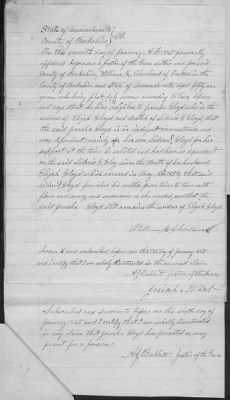 State of Massachusetts
County of Berkshire } SS.
On this seventh day of January A.D. 1865 personally
appeared before me a Justice of the Peace within and for said
County of Berkshire, William N. Cleveland of Dalton in the
County of Berkshire and State of Massachusetts aged fifty one
years, who being first duly sworn according to law deposes
and says that he is to Jerusha Lloyd who is the
widow of Elijah Lloyd and mother of Sidney I Lloyd, that
the said Jerusha Lloyd is in indigent circumstances and
was dependent mainly upon her son Sidney Lloyd for her
support at the time he enlisted and has been so dependent
on the said Sidney I. Lloyd since the death of her husband
Elijah Lloyd which occurred in May that said
Sidney Lloyd furnished his mother from time to time with
flour and money and necessaries as she needed and that the
said Jerusha Lloyd still remains the widow of Elijah Lloyd
William N. Cleveland
Sworn to and subscribed before me this day of January 1865
and I certify that I am wholly disinterested in the
Justice of the Peace
Josiah
Subscribed and sworn to before me this sixth day of
January 1865 and I certify that I am wholly disinterested
in any claim that Jerusha Lloyd has presented or may
present for a pension.
Justice of the Peace